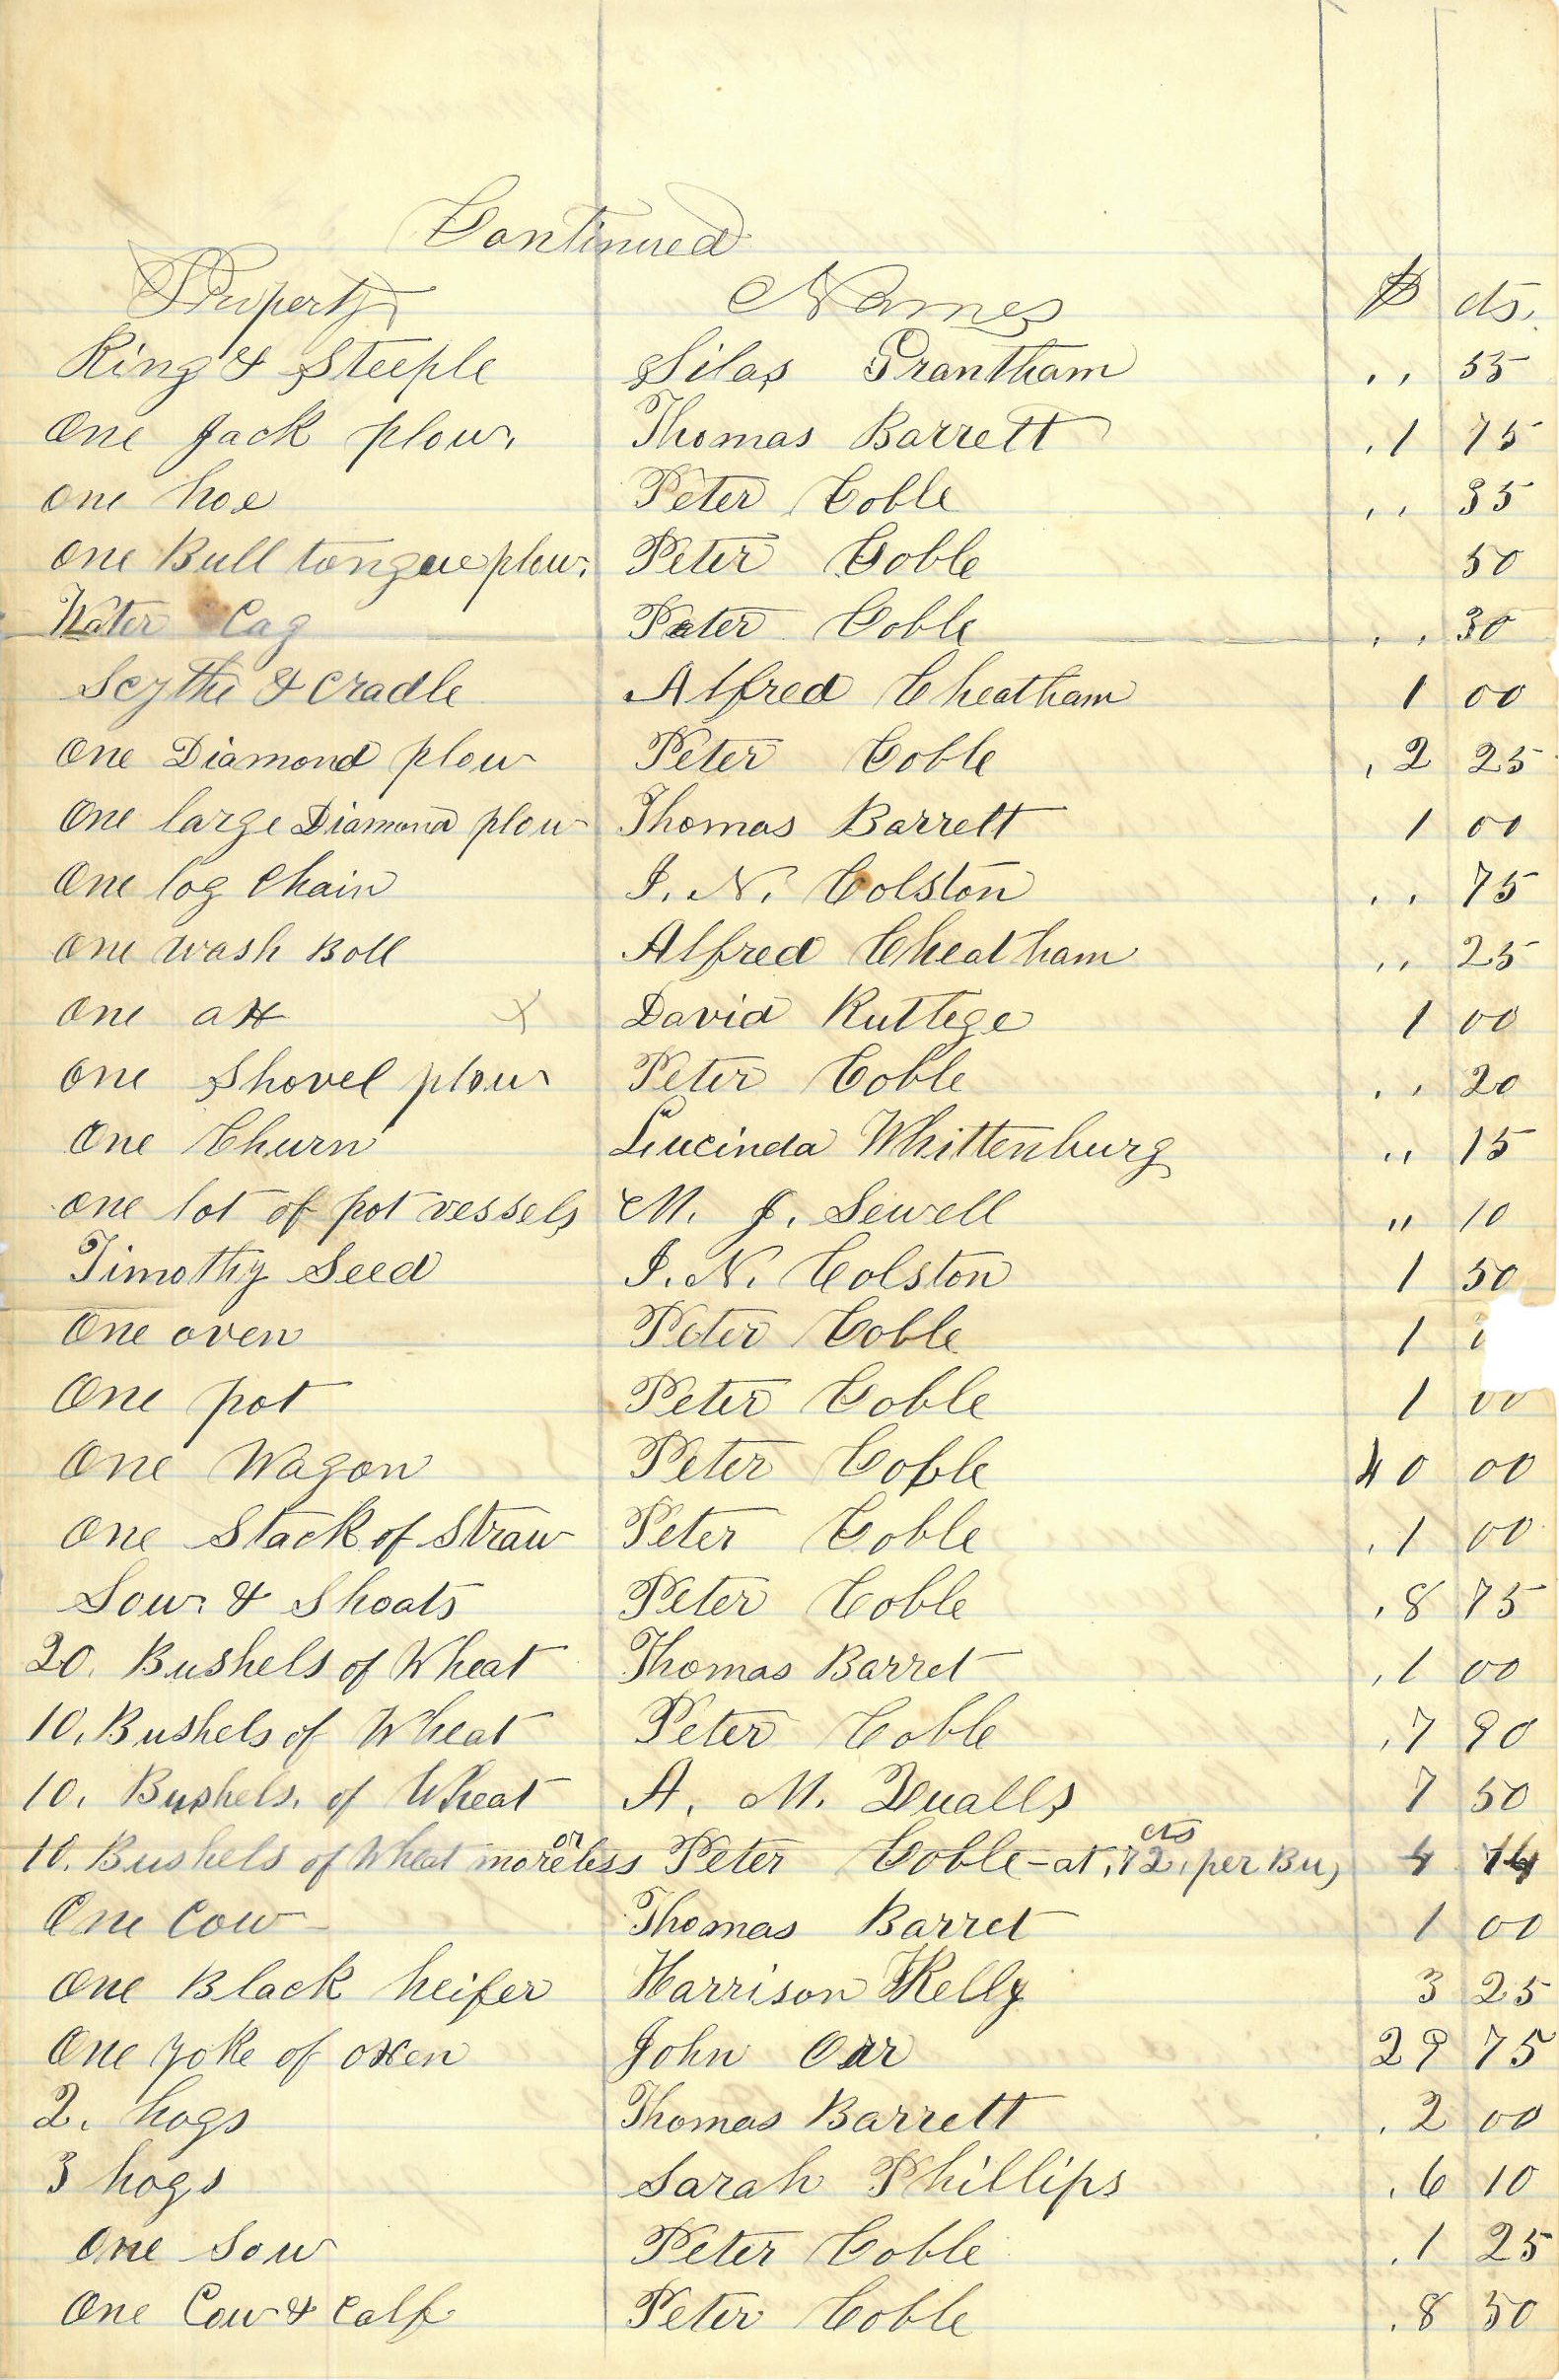 Continued
Property Names $ cts.
Ring & Steeple Silas Grantham ,, 55
One Jack plow, Thomas Barrett ,1 75
one hoe Peter Coble ,, 35
one Bull tongue plow, Peter Coble 50
Water Cag Peter Coble ,, 30
Scythe & Cradle Alfred Cheatham 1 00
One Diamond plow Peter Coble ,2 25
One large Diamond plow Thomas Barrett 1 00
One log Chain I. N. Colston ,, 75
One wash Boll Alfred Cheatham ,, 25
One ax x David Ruttege 1 00
One Shovel plow Peter Coble ,, 20
One Churn Lucinda Whittenburg ,, 15
one lot of pot vessels M. J. Sewell ,, 10
Timothy Seed I. N. Colston 1 50
One oven Peter Coble 1
One pot Peter Coble 1 00
One Wagon Peter Coble 40 00
One Stack of Straw Peter Coble ,1 00
Sow & Shoats Peter Coble ,8 75
20. Bushels of Wheat Thomas Barret ,1 00
10. Bushels of Wheat Peter Coble ,7 90
10. Bushels. of Wheat A. M. Qualls 7 50
10. Bushels of Wheat more or less Peter Coble - at ,72, cts per Bu, 4 14
One Cow Thomas Barret 1 00
One Black heifer Harrison Kelly 3 25
One yoke of oxen John Orr 29 75
2. hogs Thomas Barrett ,2 00
3 hogs Sarah Phillips ,6 10
One Sow Peter Coble ,1 25
One Cow & Calf Peter Coble ,8 50